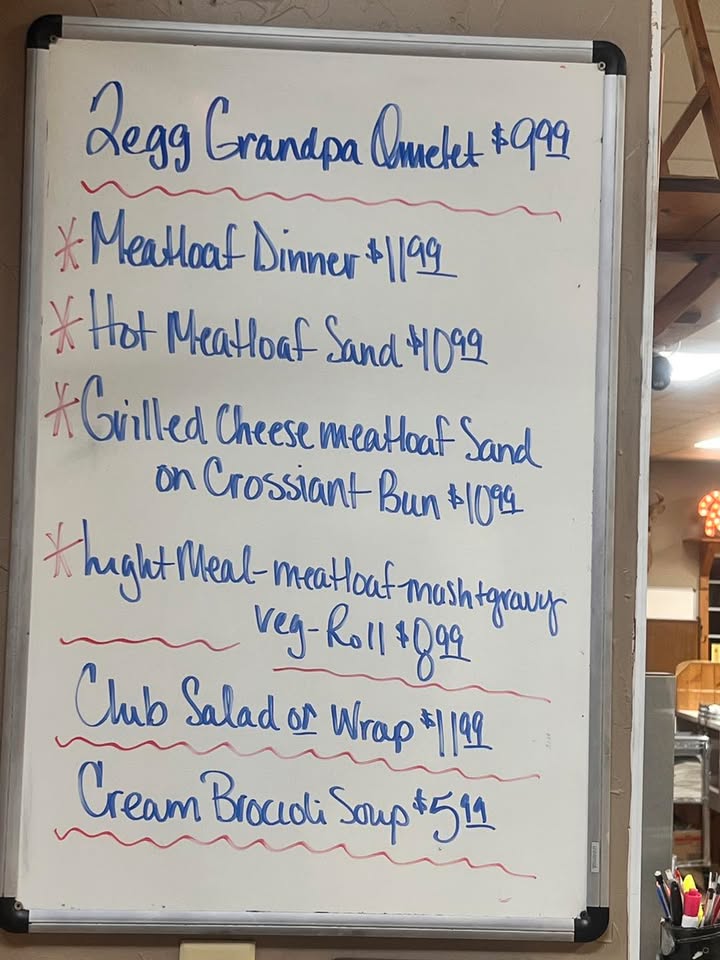 2egg Grandpa Omelet $9.99
* Meatloaf Dinner $11.99
* Hot Meatloaf Sand $10.99
* Grilled Cheese meatloaf Sand
on Crossiant Bun $10.99
* Light Meal-meatloaf-mash+gravy
veg-Roll $8.99
Club Salad or Wrap $11.99
Cream Broccoli Soup $5.99